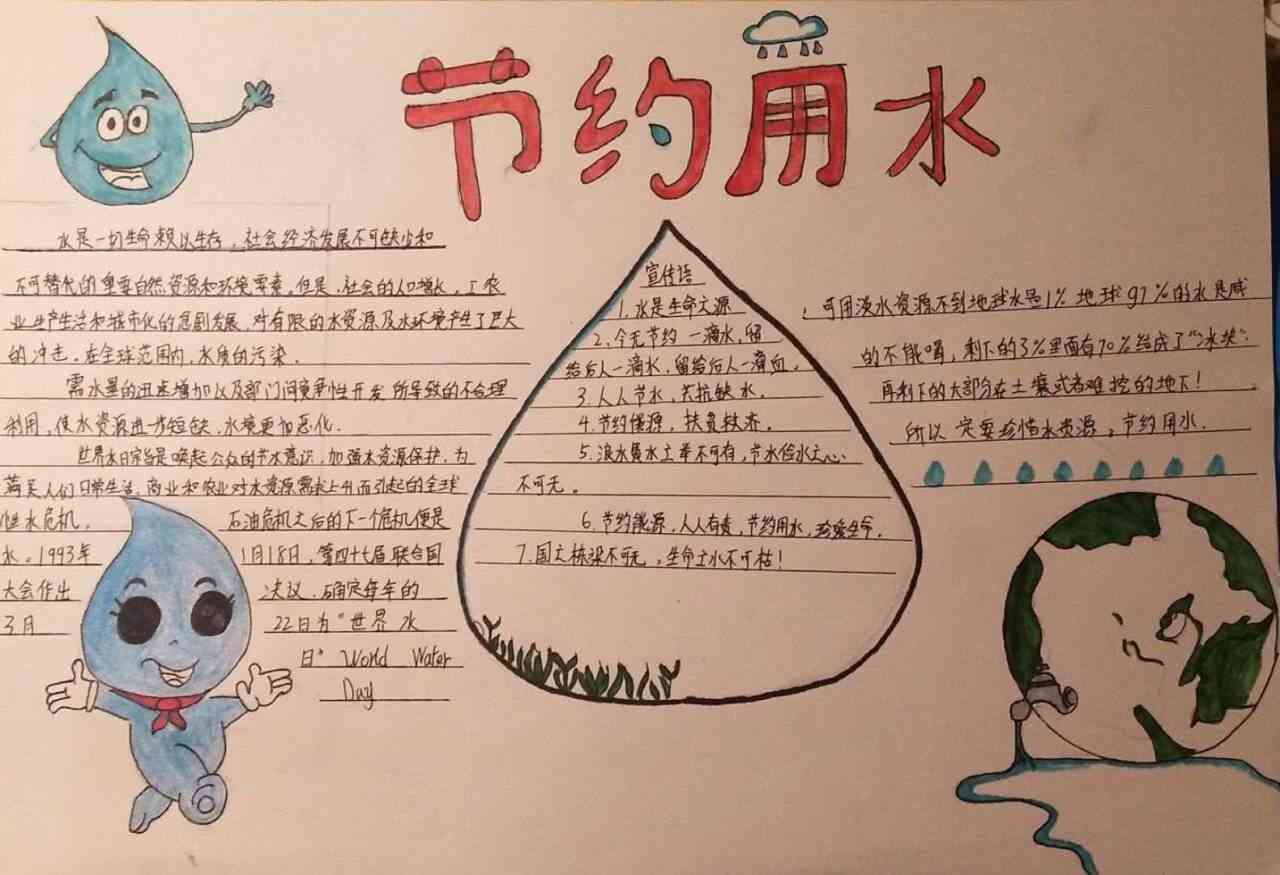 节约用水
水是一切生命赖以生存，社会经济发展不可缺少和
不可替代的重要自然资源和环境要素。但是，社会的人口增长，工农
业生产生活和城市化的急剧发展，对有限的水资源及水环境产生了巨大
的冲击。在全球范围内，水质的污染、
需水量的迅速增加以及部门间竞争性开发所导致的不合理
利用，使水资源进步短缺，水境更加恶化.
世界水日宗旨是唤起公众的节水意识，加强水资源保护。为
满足人们日常生活、商业和农业对水资源需求上升而引起的全球
性水危机。石油危机之后的下一个危机便是
水。1993年1月18日，第四十七届联合国
大会作出决议，确定每年的
3月22日为"世界水
日" World Water
Day
宣传语
1、水是生命之源
2、今无节约一滴水，留
给后人一滴水，留给后人一滴血。
3、人人节水，共抗缺水。
4、节约能源，扶贫救济。
5、浪水费水之举不可有，节水俭水之心
不可无。
6、节约能源，人人有责，节约用水，珍爱生命.
7.国之栋梁不可无，生命之水不可枯！
可用淡水资源不到地球水是1% 地球97%的水是咸
的不能喝，剩下的3%里面有70%结成了"冰块"
再剩下的大部分在土壤或者难挖的地下！
所以一定要珍惜水资源，节约用水.